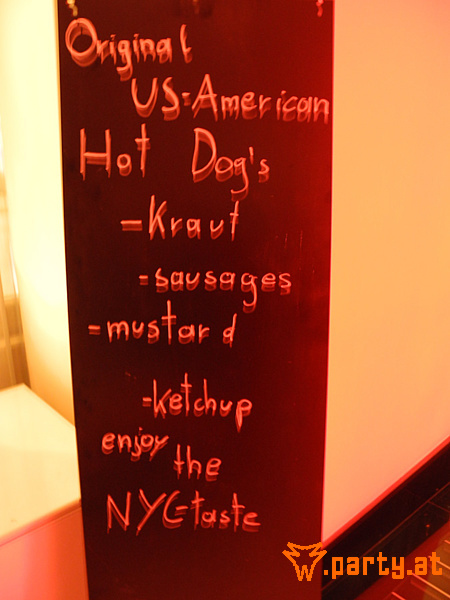 Original
US-American
Hot Dog's
-Kraut
-sausages
-mustard
-ketchup
enjoy
the
NYC-taste
w.party.at